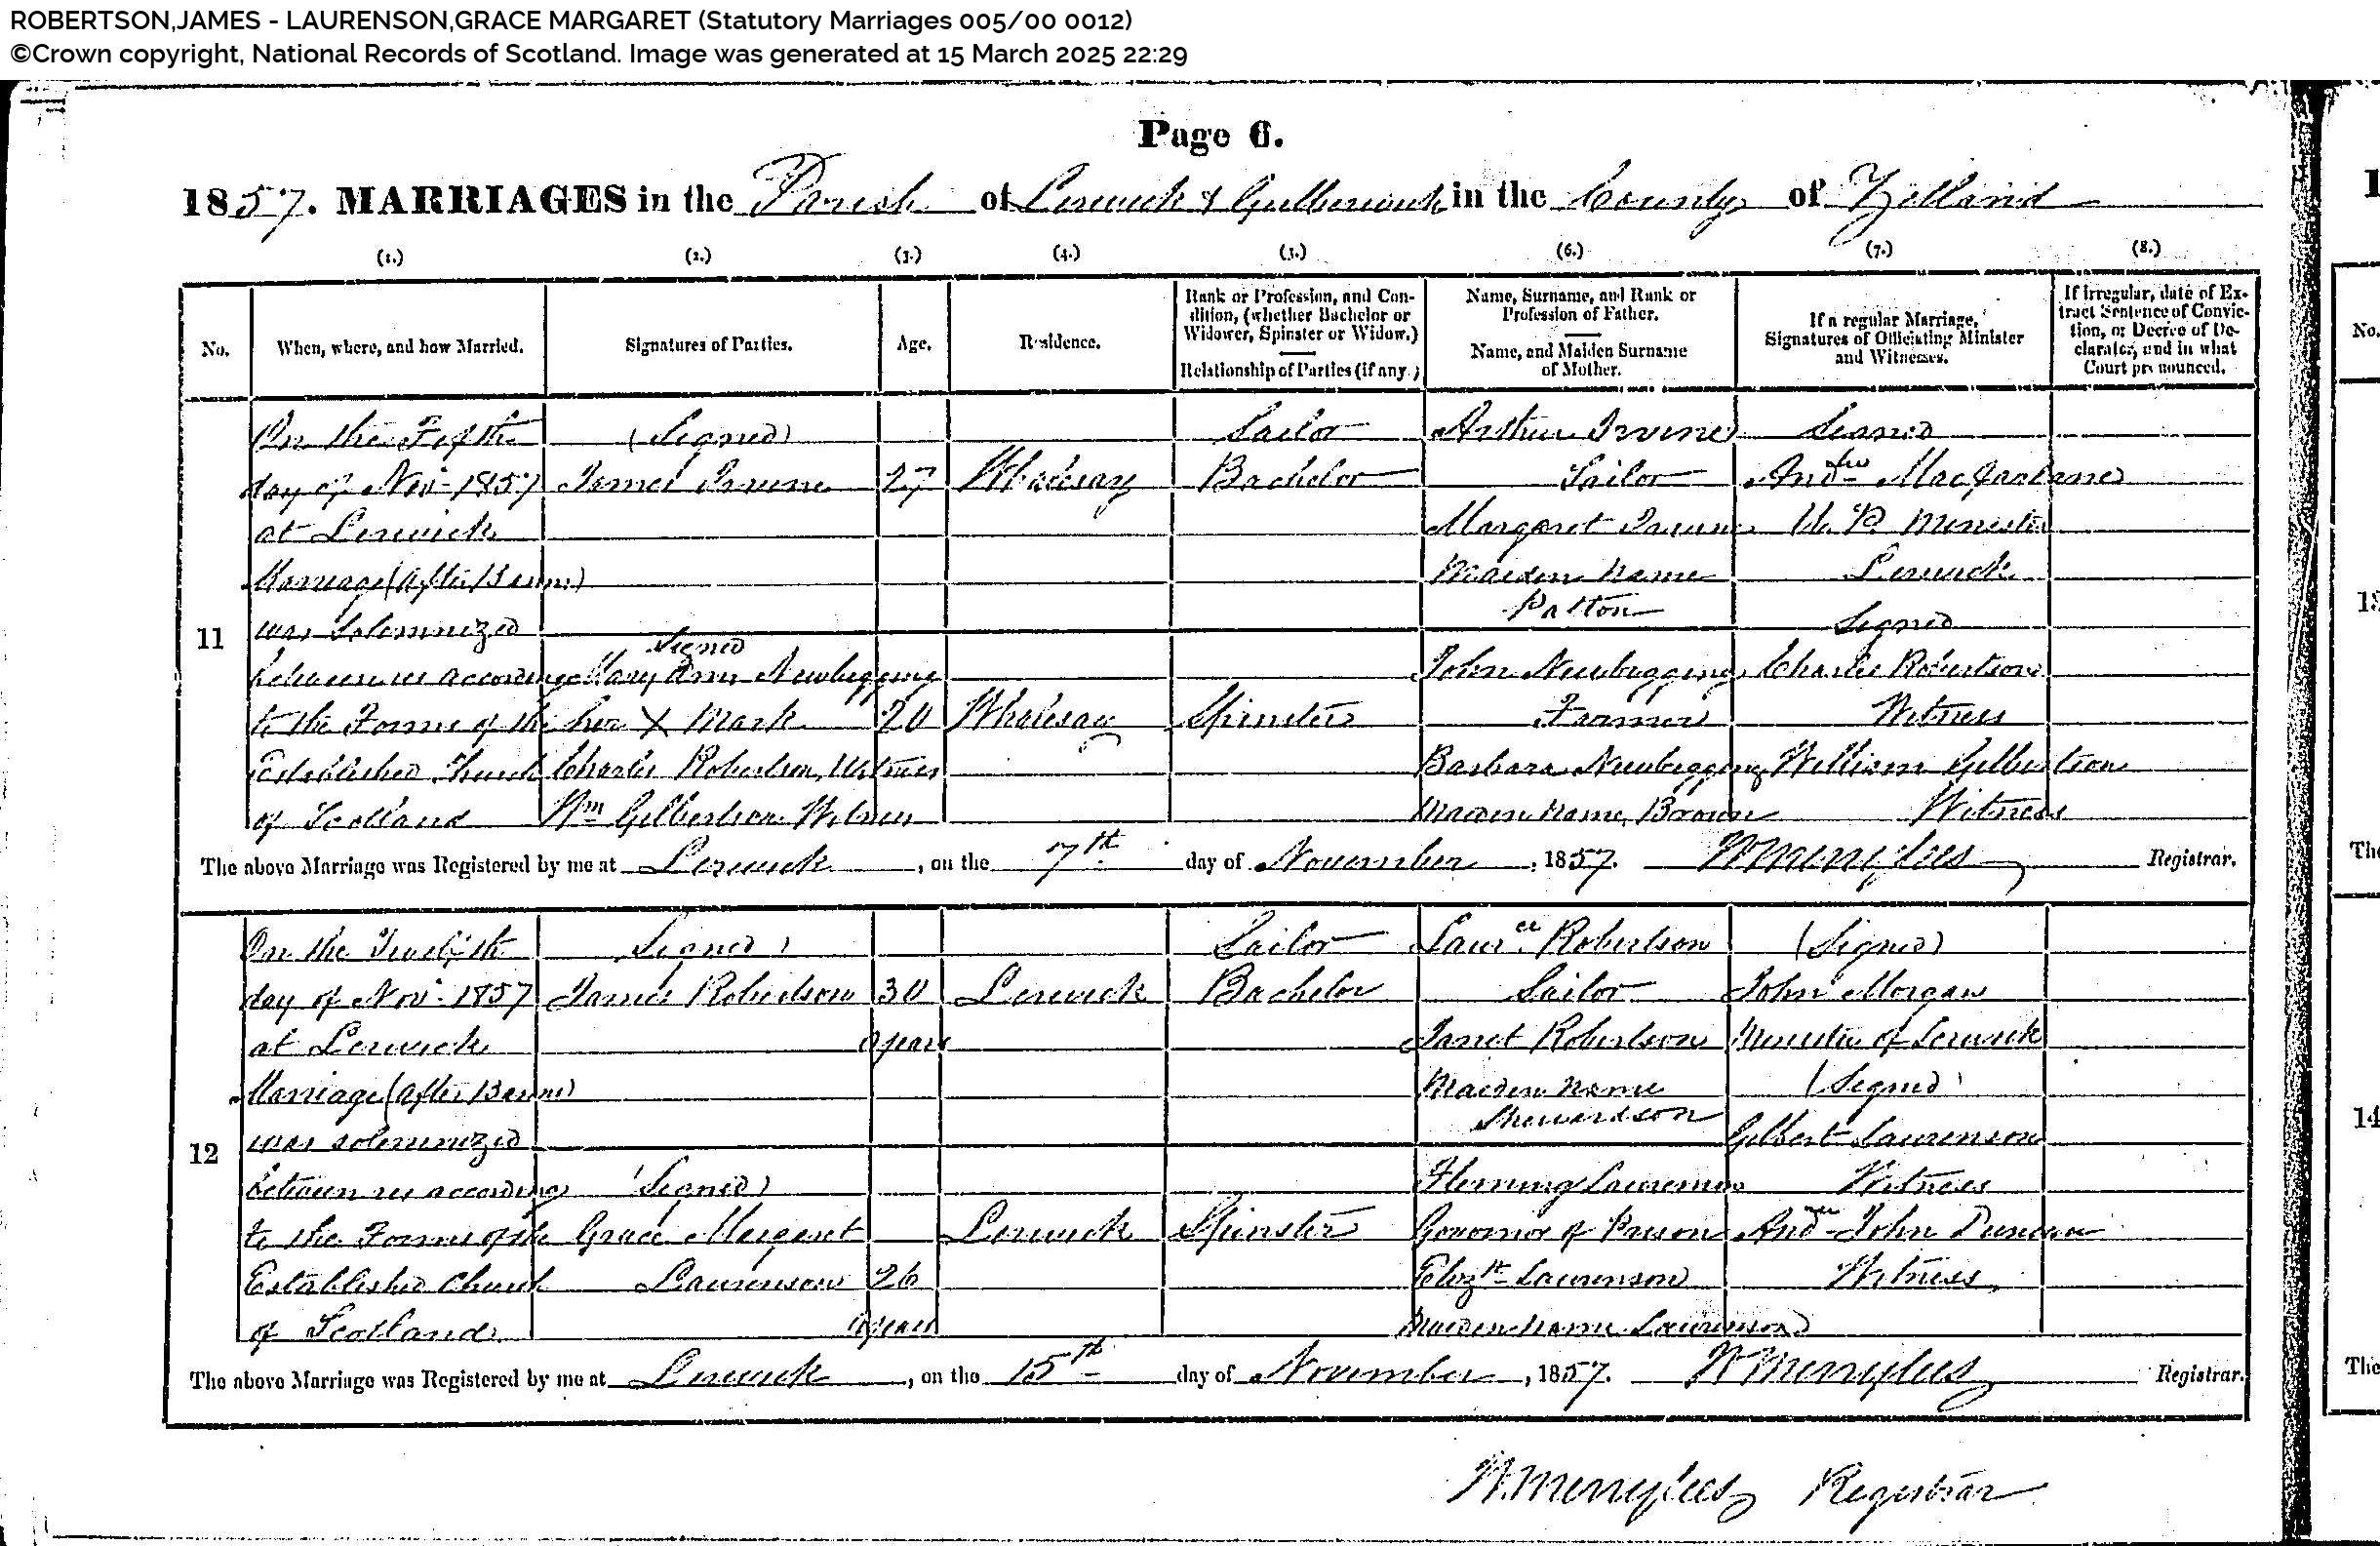 ROBERTSON,JAMES - LAURENSON,GRACE MARGARET (Statutory Marriages 005/00 0012)
©Crown copyright, National Records of Scotland. Image was generated at 15 March 2025 22:29
Page 6.
1857. MARRIAGES in the Parish of Lerwick & Gulberwick in the County of Zetland
(1.) (2.) (3.) (4.) (5.) (6.) (7.) (8.)
No.
When, where, and how Married.
Signatures of Parties.
Age.
Residence.
Rank or Profession, and Con-
dition, (whether Bachelor or
Widower, Spinster or Widow.)
Relationship of Parties (if any.)
Name, Surname, and Rank or
Profession of Father.
Name, and Maiden Surname
of Mother.
If a regular Marriage,
Signatures of Officiating Minister
and Witnesses.
If irregular, date of Ex-
tract Sentence of Convic-
tion, or Decree of De-
clarator, and in what
Court pronounced.
11
On the Fifth
day of Nov. 1857
at Lerwick
Marriage (After Banns)
was Solemnized
between us according
to the Forms of the
Established Church
of Scotland
(Signed)
James Irvine
Signed
Mary Ann Newbegging
her X Mark
Charles Robertson, Witness
Wm Gilbertson Witness
27
20
Whalsay
Whalsay
Sailor
Bachelor
Spinster
Arthur Irvine
Sailor
Margaret Irvine
Maiden Name
Patton
John Newbegging
Barbara Newbegging
Maiden Name, Brown
Signed
Andw MacFarlane
U. P. Minister
Lerwick
Signed
Charles Robertson
Witness
William Gilbertson
Witness
The above Marriage was Registered by me at Lerwick, on the 7th day of November, 1857. W Merrylees Registrar.
12
On the Twelfth
day of Nov. 1857
at Lerwick
Marriage (After Banns)
was solemnized
between us according
to the Forms of the
Established Church
of Scotland
Signed)
James Robertson
(Signed)
Grace Margaret
Laurenson
30
years
26
years
Lerwick
Lerwick
Sailor
Bachelor
Spinster
Laurce Robertson
Sailor
Janet Robertson
Maiden Name
Shewardson
Fleming Laurenson
Governor of Prison
Elizth Laurenson
Maiden Name Laurenson
(Signed)
John Morgan
Minister of Lerwick
(Signed)
Gilbert Laurenson
Witness
Andw John Duncan
Witness
The above Marriage was Registered by me at Lerwick, on the 15th day of November, 1857. W Merrylees Registrar.
W. Merrylees Registrar
1
No.
The
14
The